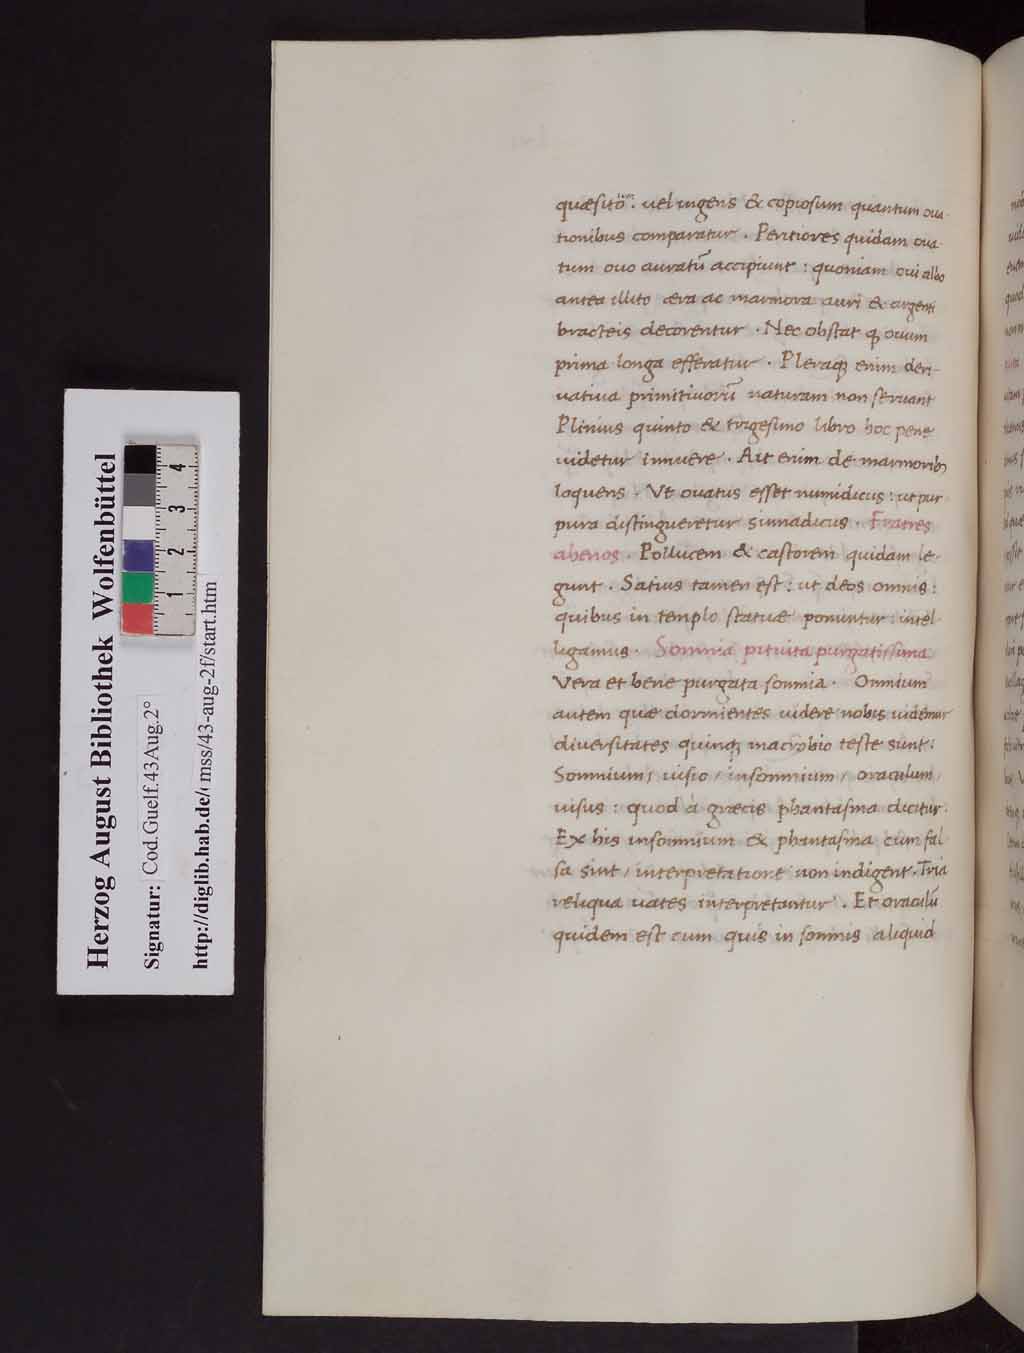 Herzog August Bibliothek Wolfenbüttel
Signatur: Cod.Guelf.43Aug.2°
http://diglib.hab.de/ mss/43-aug-2f/start.htm
1 2 3 4
quæsitō. uel ingens & copiosum quantum oua-
tionibus comparatur. Peritiores quidam oua-
tum ouo auratū accipiunt: quoniam oui albo
antea illito æra ac marmora auri & argenti
bracteis decorentur. Nec obstat ꝙ ouum
prima longa efferatur. Pleraqꝫ enim deri-
uatiua primitiuorū naturam non seruant
Plinius quinto & trigesimo libro hoc pene
uidetur innuere. Ait enim de marmoribꝫ
loquens. Vt ouatus esset numidicus: ut pur
pura distingueretur sinnadicus. Fratres
ahenos. Pollucem & castorem quidam le-
gunt. Satius tamen est: ut deos omnis:
quibus in templo statuæ ponuntur: intel-
ligamus. Somnia pituita purgatissima
Vera et bene purgata somnia. Omnium
autem quæ dormientes uidere nobis uidemur
diuersitates quinqꝫ macrobio teste sunt:
Somnium/ uisio/ insomnium/ oraculum/
uisus: quod à græcis phantasma dicitur.
Ex his insomnium & phantasma cum fal
sa sint/ interpretatione non indigent. Tria
reliqua uates interpretantur. Et oraculū
quidem est cum quis in somnis aliquid